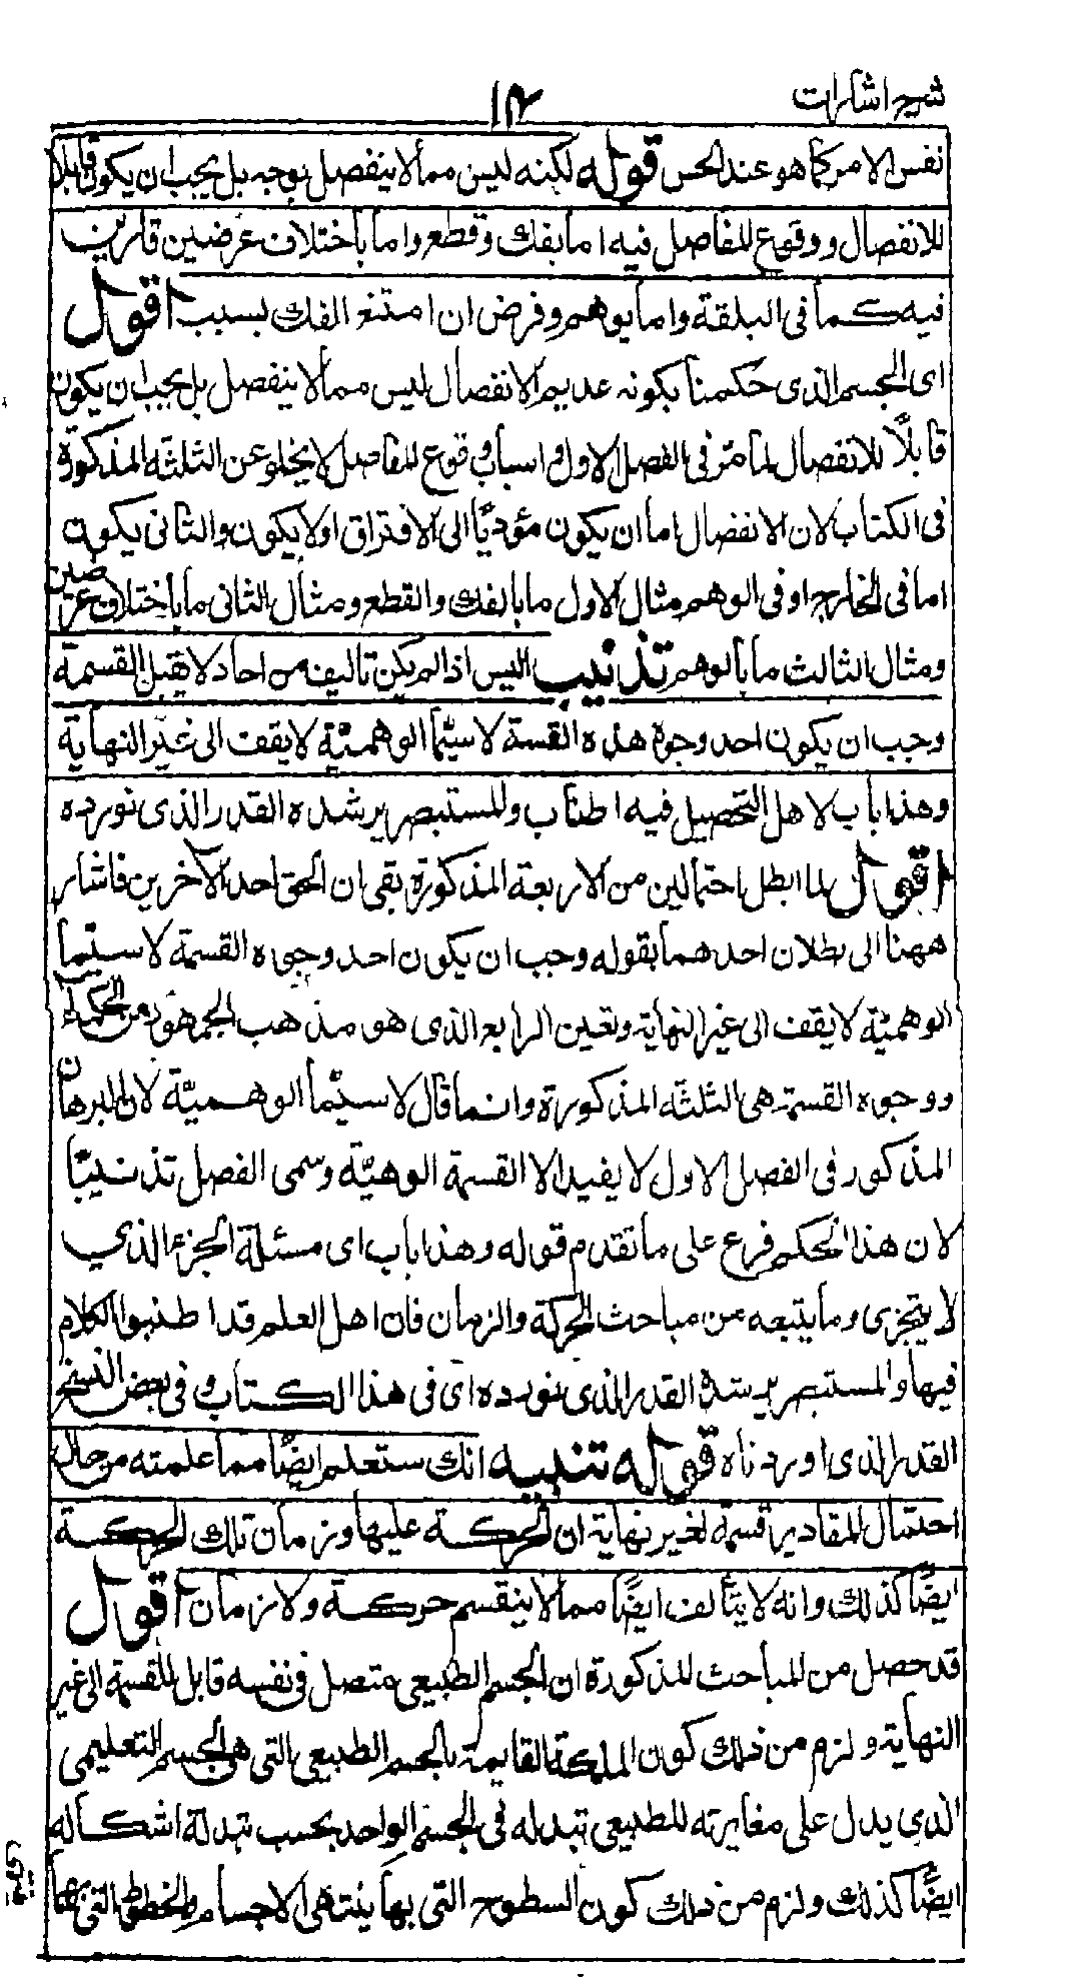 شرح اشارات
١٢
نفس الامر كما هو عند الحس قوله لكنه ليس مما لا ينفصل بوجه بل يجب ان يكون قابلا
للانفصال ووقوع المفاصل فيه اما بفك وقطع واما باختلاف عرضين قارين
فيه كما فى البلقة واما بوهم وفرض ان امتنع الفك بسبب اقول
اى الجسم الذى حكمنا بكونه عديم الانفصال ليس مما لا ينفصل بل يجب ان يكون
قابلًا للانفصال لما مرّ فى الفصل الاول و اسباب وقوع المفاصل لا يخلو عن الثلثة المذكورة
فى الكتاب لان الانفصال اما ان يكون مؤديًا الى الافتراق اولا يكون والثانى يكون
اما فى الخارج او فى الوهم مثال الاول ما بالفك والقطع ومثال الثانى ما باختلاف عرضين
ومثال الثالث ما بالوهم تذنيب اليس اذا لم يكن تاليفه من احاد لا تقبل القسمة
وجب ان يكون احد وجوه هذه القسمة لا سيّما الوهميّة لا يقف الى غير النهاية
وهذا باب لاهل التحصيل فيه اطناب والمستبصر يرشده القدر الذى نورده
اقول لما ابطل احتمالين من الاربعة المذكورة بقى ان الحق احد الآخرين فاشار
ههنا الى بطلان احدهما بقوله وجب ان يكون احد وجوه القسمة لا سيّما
الوهميّة لا يقف الى غير النهاية وتعين الرابع الذى هو مذهب الجمهور من الحكماء
ووجوه القسمة هى الثلثة المذكورة وانما قال لا سيّما الوهميّة لان البرهان
المذكور فى الفصل الاول لا يفيد الا القسمة الوهميّة وسمى الفصل تذنيبًا
لان هذا الحكم فرع على ما تقدم قوله وهذا باب اى مسئلة الجزء الذي
لا يتجزى وما يتبعه من مباحث الحركة والزمان فان اهل العلم قد اطنبوا الكلام
فيها والمستبصر يرشده القدر الذى نورده اى فى هذا الكتاب و فى بعض النسخ
القدر الذى اوردناه قوله تنبيه انك ستعلم ايضًا مما علمته من حال
احتمال المقادير قسمة لغير نهاية ان الحركة عليها وزمان تلك الحركة
ايضًا كذلك وانه لا يتألف ايضًا مما لا ينقسم حركة ولا زمان اقول
قد حصل من المباحث المذكورة ان الجسم الطبيعى متصل فى نفسه قابل للقسمة الى غير
النهاية ولزم من ذلك كون القايمة بالجسم الطبيعى التى هى الجسم التعليمى
الذى يدل على مغايرته للطبيعى تبدله فى الجسم الواحد بحسب تبدلة اشكاله
ايضًا كذلك ولزم من ذلك كون السطوح التى بها ينتهى الاجسام والخطوط التى بها